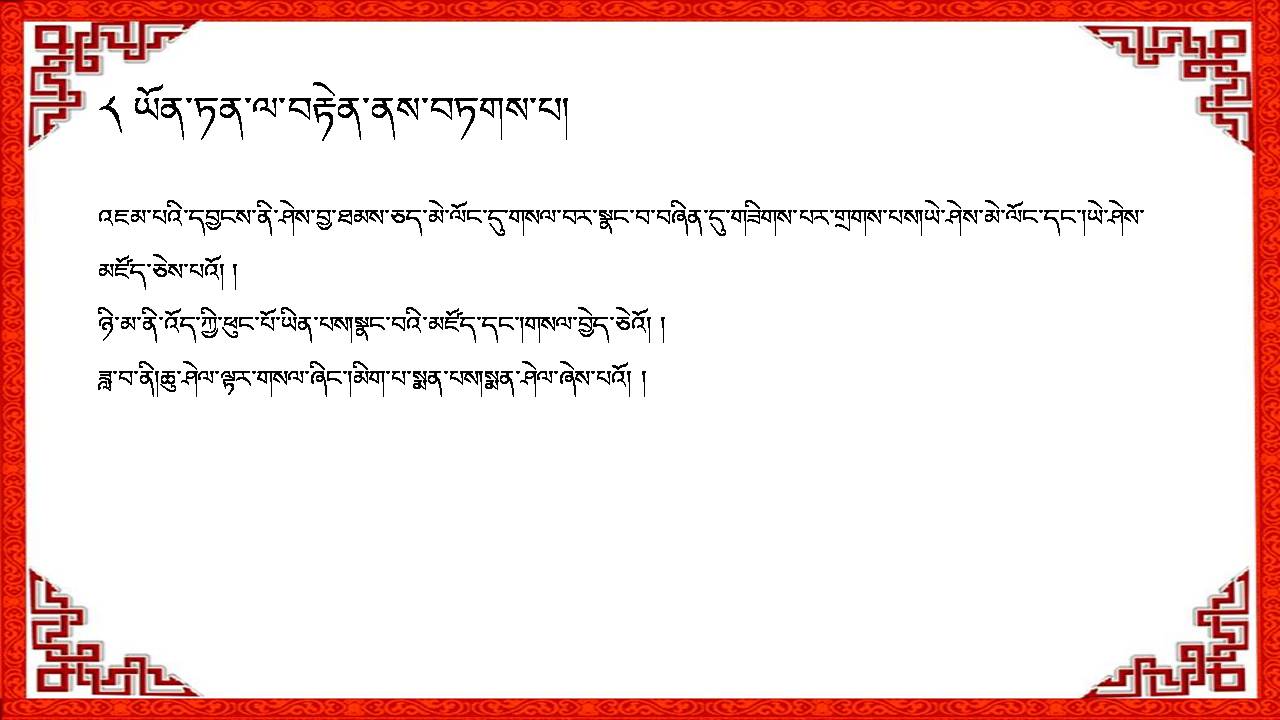 ༨ ཡོན་ཏན་ལ་བརྟེན་ནས་བཏགས་པ།
འཇམ་པའི་དབྱངས་ནི་ཤེས་བྱ་ཐམས་ཅད་མེ་ལོང་དུ་གསལ་བར་སྣང་བ་བཞིན་དུ་གཟིགས་པར་གྲགས་པས།ཡེ་ཤེས་མེ་ལོང་དང་།ཡེ་ཤེས་
མཛོད་ཅེས་པའོ། །
ཉི་མ་ནི་འོད་ཀྱི་ཕུང་པོ་ཡིན་པས།སྣང་བའི་མཛོད་དང་།གསལ་བྱེད་ཅེའོ། །
ཟླ་བ་ནི།ཆུ་ཤེལ་ལྟར་གསལ་ཞིང་།མིག་པ་སྨན་པས།སྨན་ཤེལ་ཞེས་པའོ། །